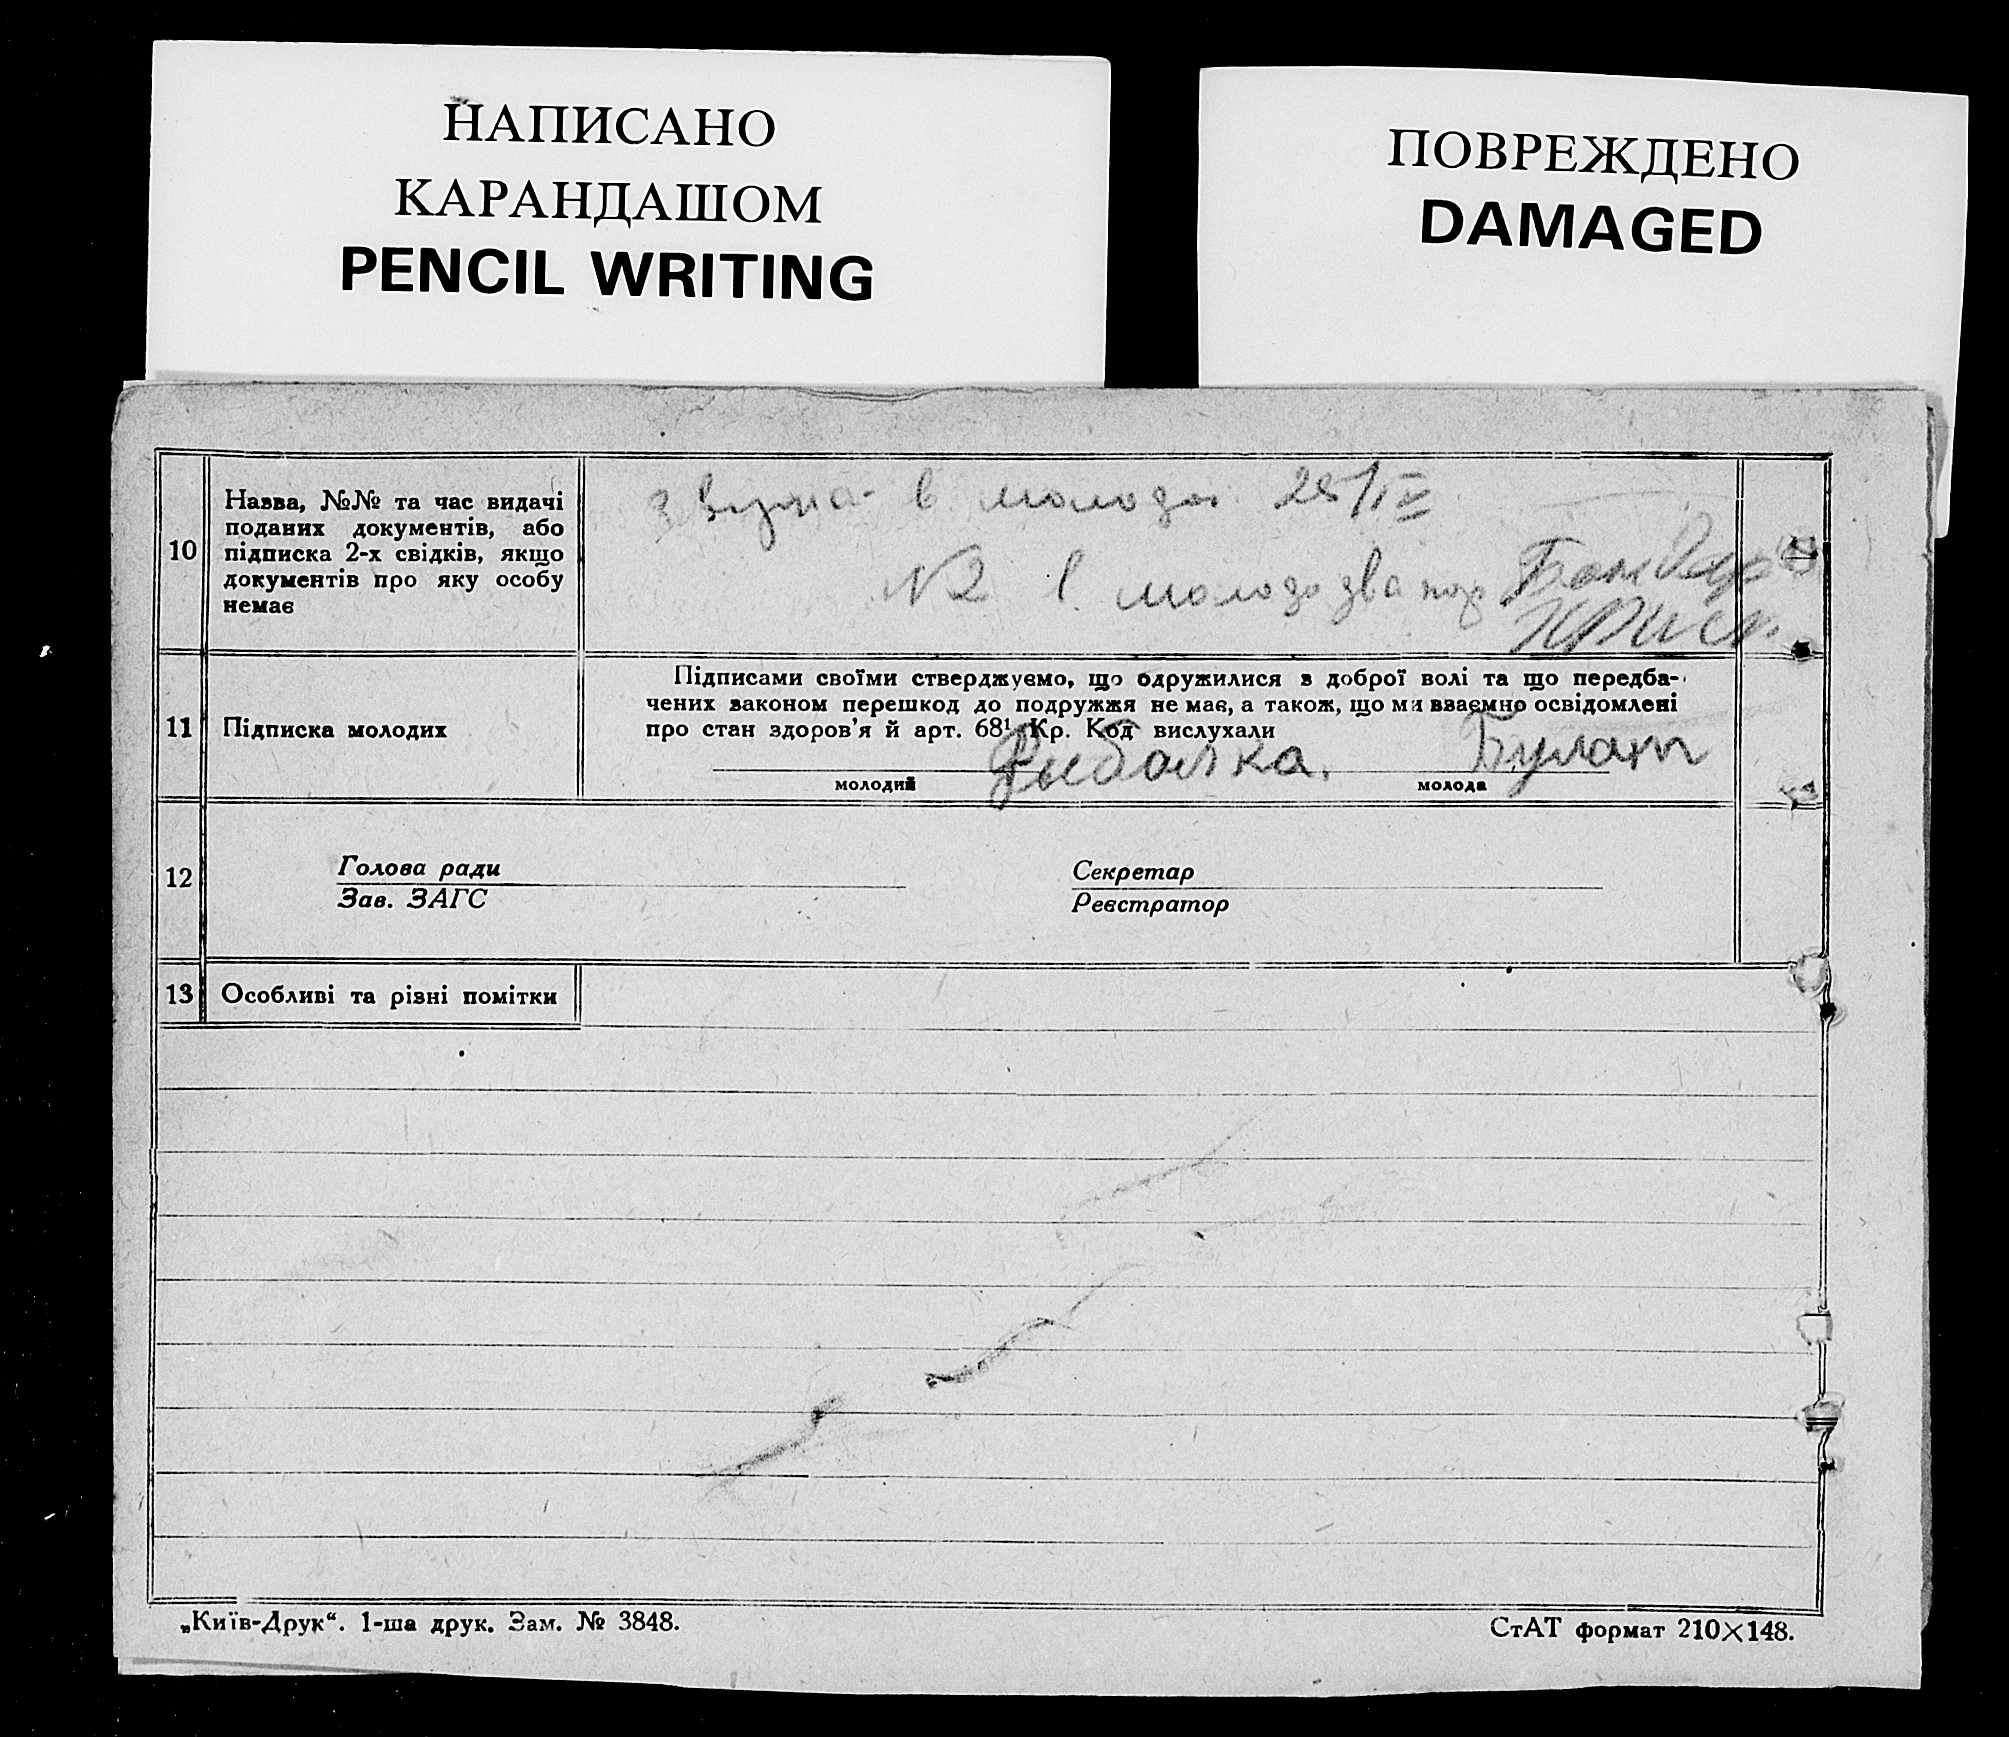 НАПИСАНО
КАРАНДАШОМ
PENCIL WRITING
ПОВРЕЖДЕНО
DAMAGED
10
Назва, №№ та час видачі
поданих документів, або
підписка 2-х свідків, якщо
документів про яку особу
немає
в молодої
№2 в молодо
11
Підписка молодих
Підписами своїми стверджуємо, що одружилися з доброї волі та що передба-
чених законом перешкод до подружжя не має, а також, що ми взаємно освідомлені
про стан здоров'я й арт. 68¹ Кр. Код вислухали
Рыбалка. Булат
молодий молода
12
Голова ради Секретар
Зав. ЗАГС Реєстратор
13
Особливі та різні помітки
„Київ-Друк“. 1-ша друк. Зам. № 3848.
СтАТ формат 210×148.